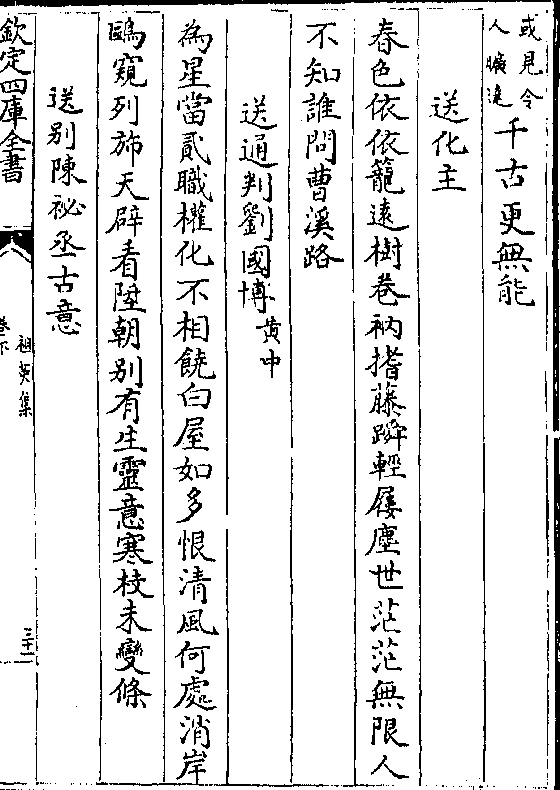 或見令人曠達千古更無能
送化主
春色依依籠遠樹卷衲搘藤躋輕屐塵世茫茫無限人
不知誰問曹溪路
送通判劉國博黄中
為星當貳職權化不相饒白屋如多恨清風何處消岸
鷗窺列旆天辟看陞朝别有生靈意寒枝未變條
送别陳祕丞古意
欽定四庫全書
祖英集
卷下
三十